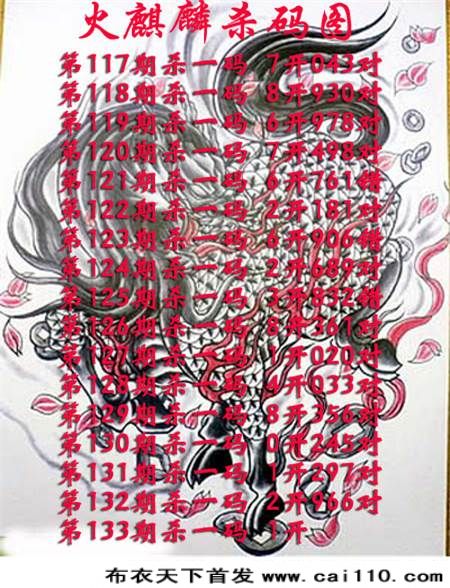 火麒麟杀码图
第117期杀一码 7开043对
第118期杀一码 8开930对
第119期杀一码 6开978对
第120期杀一码 7开498对
第121期杀一码 6开761错
第122期杀一码 2开181对
第123期杀一码 6开906错
第124期杀一码 2开689对
第125期杀一码 3开832错
第126期杀一码 8开361对
第127期杀一码 1开020对
第128期杀一码 4开033对
第129期杀一码 8开356对
第130期杀一码 0开245对
第131期杀一码 1开297对
第132期杀一码 2开966对
第133期杀一码 1开
布衣天下首发 www.cai110.com